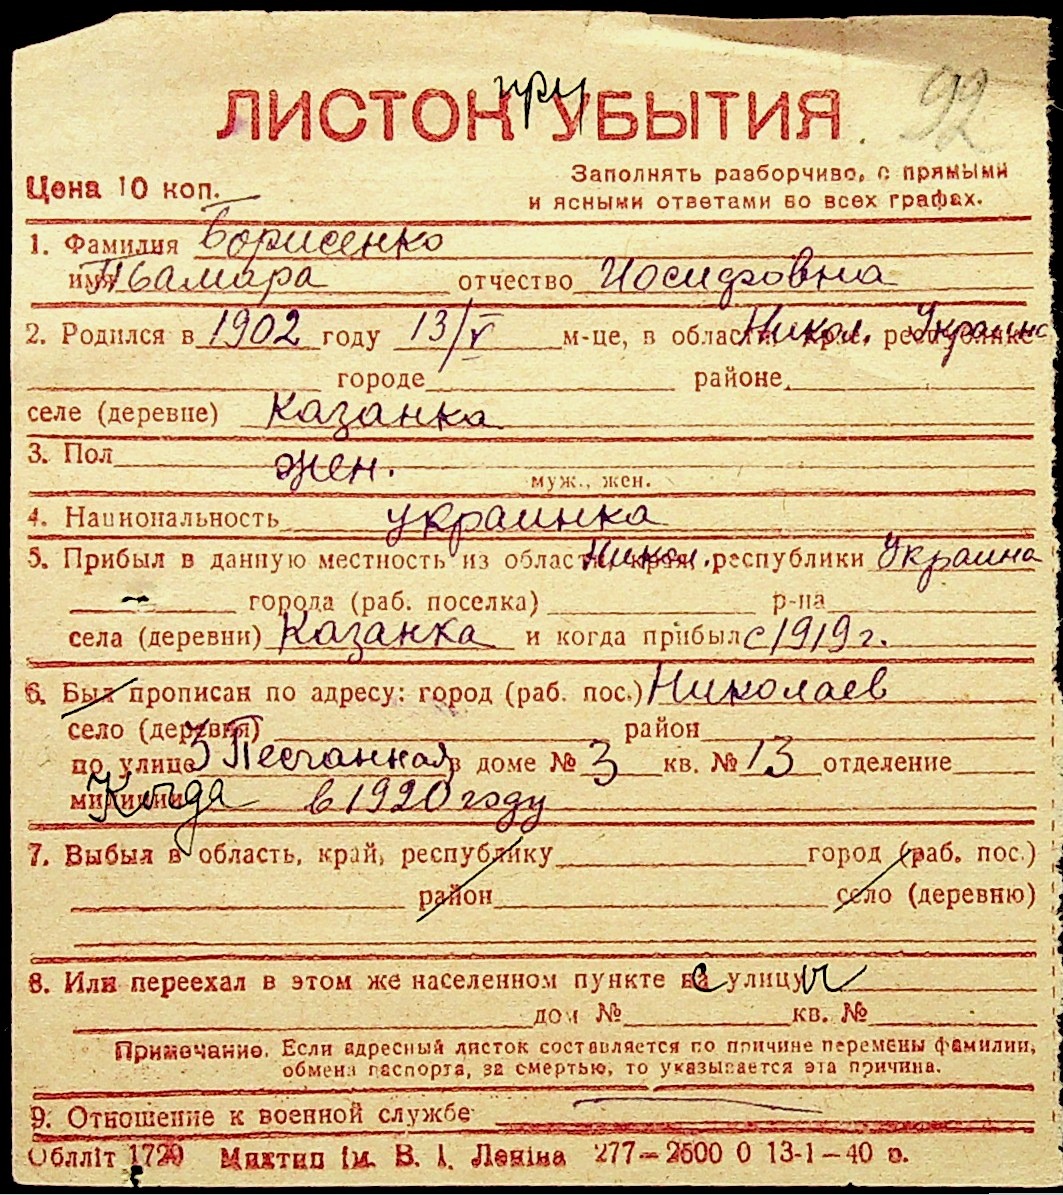 при
ЛИСТОК УБЫТИЯ 92
Заполнять разборчиво, с прямыми
Цена 10 коп.
и ясными ответами во всех графах.
1. Фамилия Борисенко
имя Тамара отчество Иосифовна
2. Родился в 1902 году 13/V м-це, в области, Никол. крае, республике Украинс
городе районе
селе (деревне) Казанка
3. Пол жен.
муж., жен.
4. Национальность украинка
5. Прибыл в данную местность из области, Никол. края, республики Украина
города (раб. поселка) р-на
села (деревни) Казанка и когда прибыл с 1919 г.
6. Был прописан по адресу: город (раб. пос.) Николаев
село (деревня) район
по улице 3 Песчанная в доме № 3 кв. № 13 отделение
милиции Когда в 1920 году
7. Выбыл в область, край, республику город (раб. пос.)
район село (деревню)
8. Или переехал в этом же населенном пункте на с улицу и
дом № кв. №
Примечание. Если адресный листок составляется по причине перемены фамилии,
обмена паспорта, за смертью, то указывается эта причина.
9. Отношение к военной службе
Облліт 1720 Миктип ім. В. І. Леніна 277—2500 0 13-1—40 р.